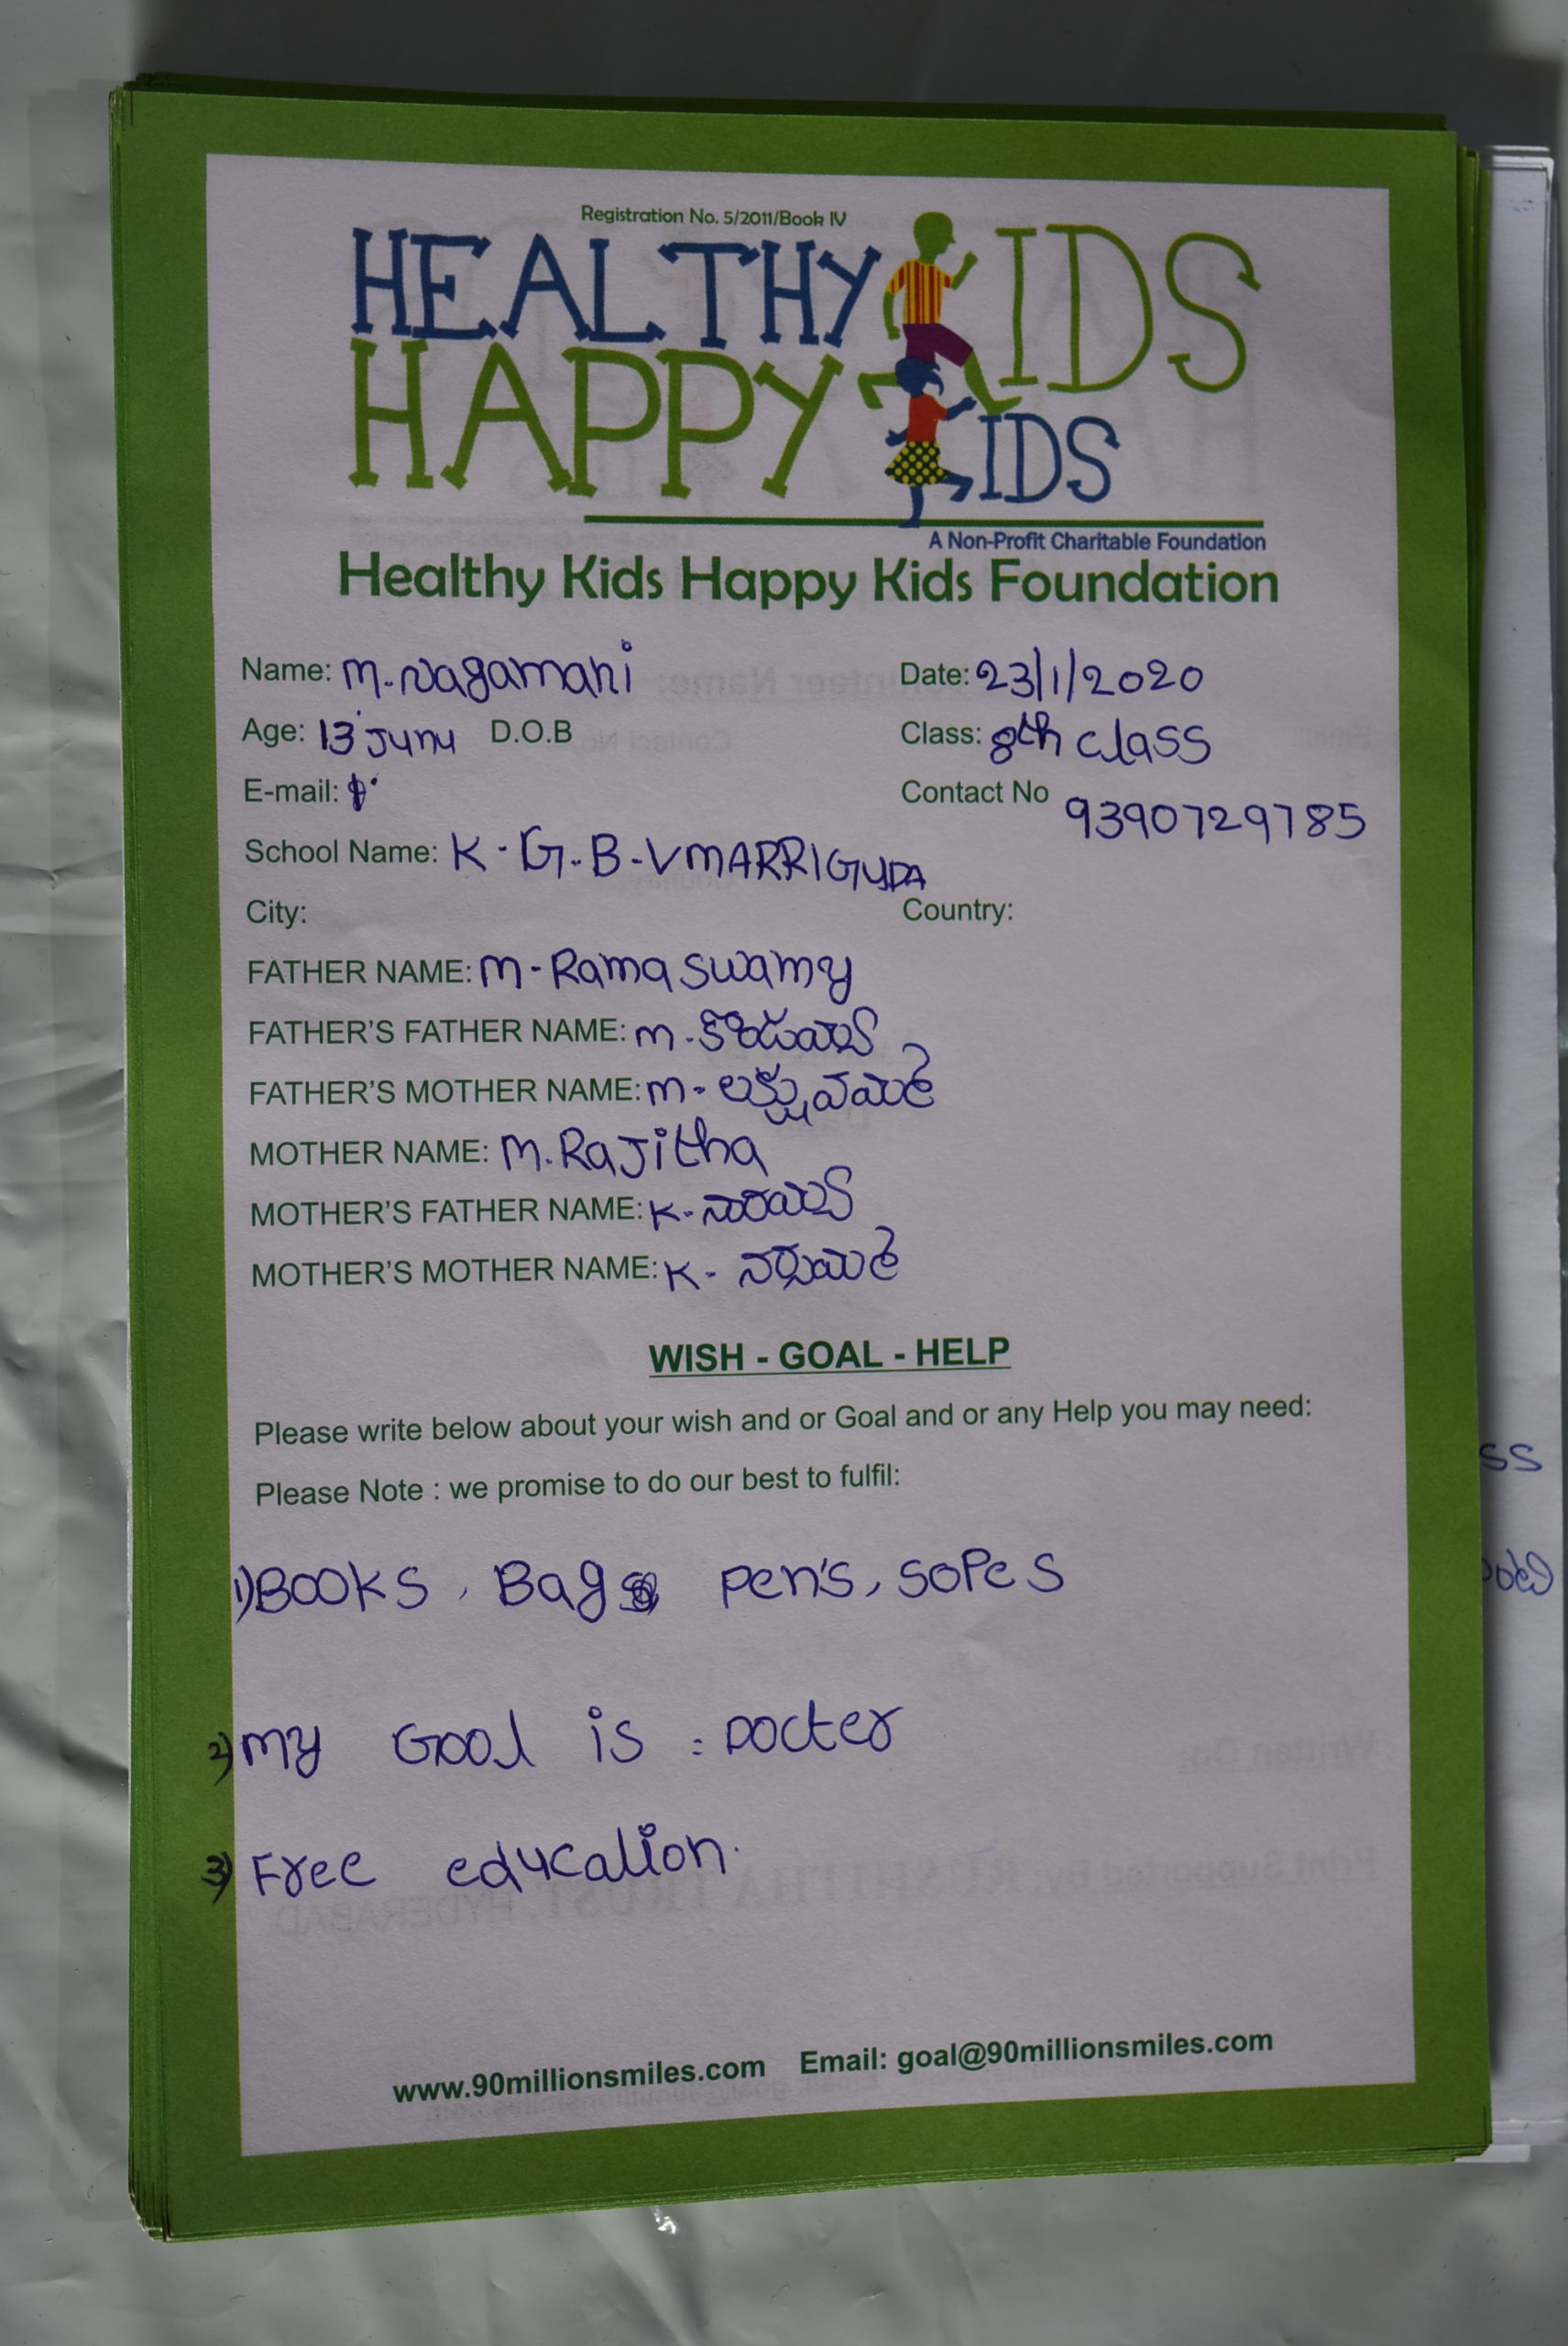 Registration No. 5/2011/Book IV
HEALTHY KIDS
HAPPY KIDS
A Non-Profit Charitable Foundation
Healthy Kids Happy Kids Foundation
Name: M. Nagamani Date: 23/1/2020
Age: 13 Juny D.O.B Class: 8th class
E-mail: Contact No 9390729785
School Name: K-G-B-V MARRIGUDA
City: Country:
FATHER NAME: M-Ramaswamy
FATHER'S FATHER NAME: M.
FATHER'S MOTHER NAME: M-
MOTHER NAME: M.Rajitha
MOTHER'S FATHER NAME: K-
MOTHER'S MOTHER NAME: K-
WISH - GOAL - HELP
Please write below about your wish and or Goal and or any Help you may need:
Please Note : we promise to do our best to fulfil:
1) BOOKS, Bags pen's, sopes
2) my Gool is : Docter
3) Free education.
www.90millionsmiles.com Email: goal@90millionsmiles.com